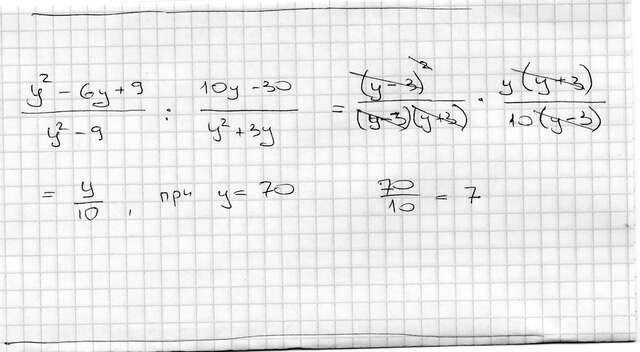 (y² - 6y + 9)/(y² - 9) : (10y - 30)/(y² + 3y) = (y - 3)²/((y - 3)(y + 3)) · y(y + 3)/(10(y - 3))
= y/10, при y = 70 70/10 = 7